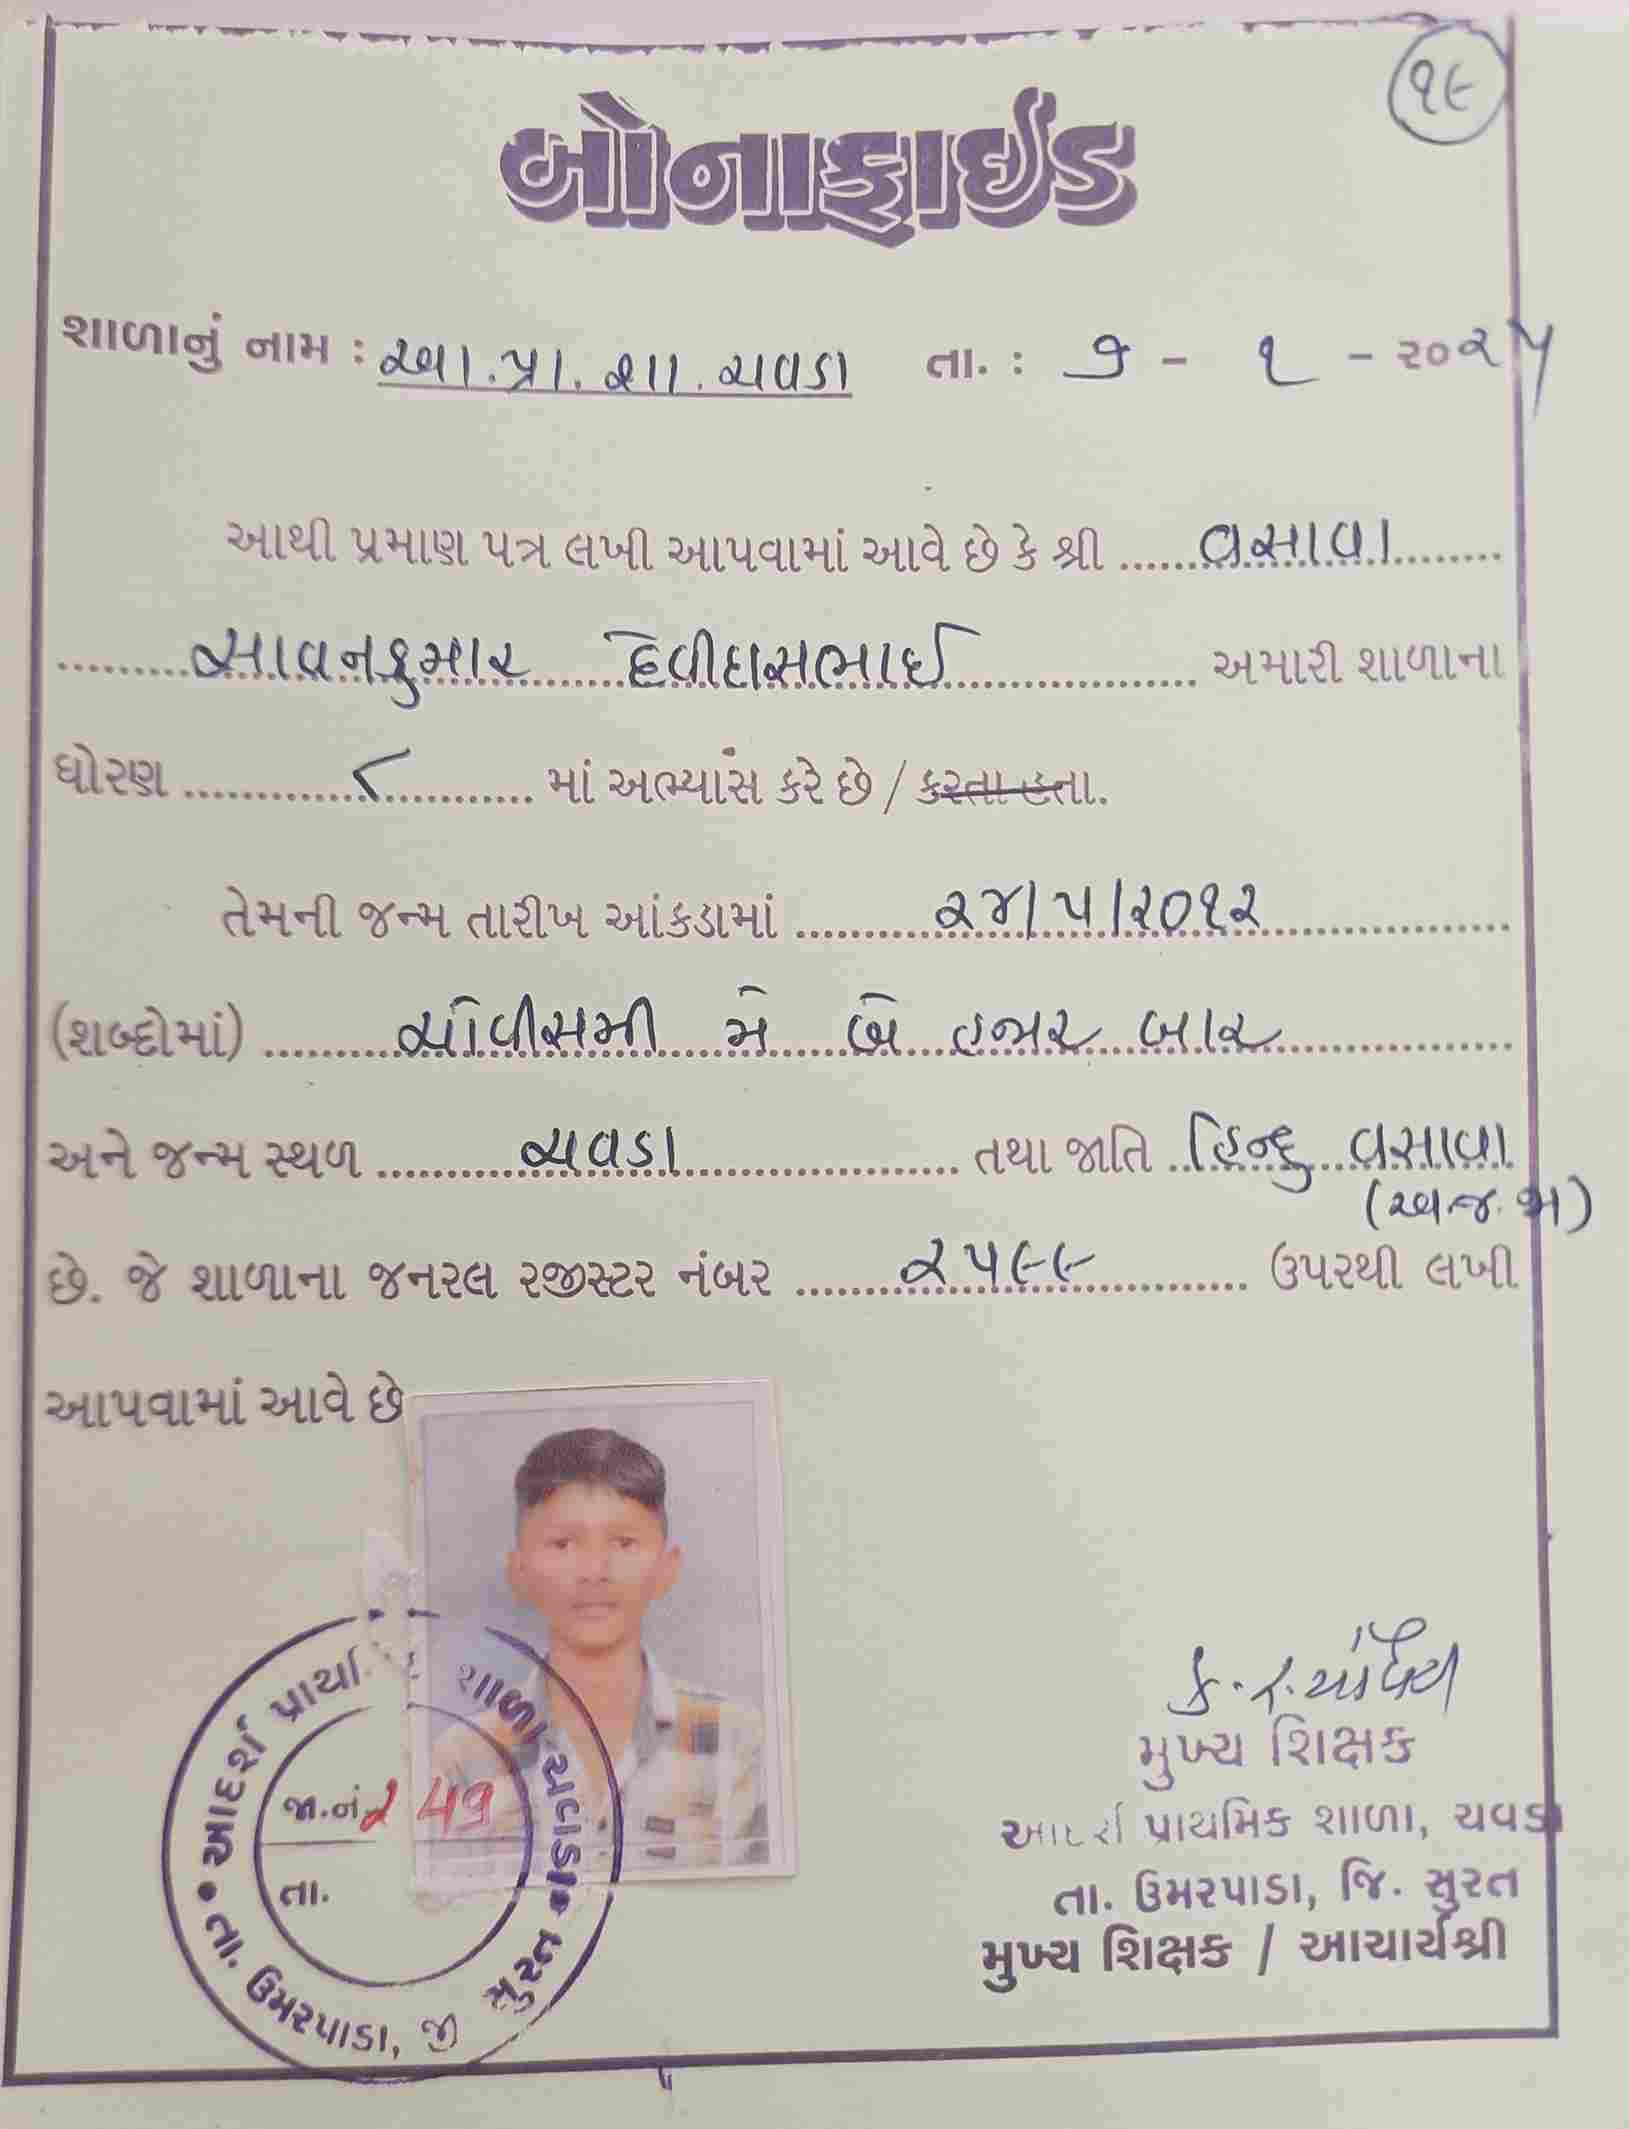 ૧૯
બોનાફાઈડ
શાળાનું નામ : આ.પ્રા.શા.ચવડા તા. : ૭ - ૧ - ૨૦૨૫
આથી પ્રમાણ પત્ર લખી આપવામાં આવે છે કે શ્રી વસાવા
સાવનકુમાર દેવીદાસભાઈ અમારી શાળાના
ધોરણ ૮ માં અભ્યાસ કરે છે / કરતા હતા.
તેમની જન્મ તારીખ આંકડામાં ૨૪/૫/૨૦૧૨
(શબ્દોમાં) ચોવીસમી મે બે હજાર બાર
અને જન્મ સ્થળ ચવડા તથા જાતિ હિન્દુ વસાવા
(અ.જ.જા)
છે. જે શાળાના જનરલ રજીસ્ટર નંબર ૨૫૯૯ ઉપરથી લખી
આપવામાં આવે છે
મુખ્ય શિક્ષક
આદર્શ પ્રાથમિક શાળા, ચવડા
તા. ઉમરપાડા, જિ. સુરત
મુખ્ય શિક્ષક / આચાર્યશ્રી
આદર્શ પ્રાથમિક શાળા ચવડા
જા.નં. 249
તા.
તા. ઉમરપાડા, જી સુરત